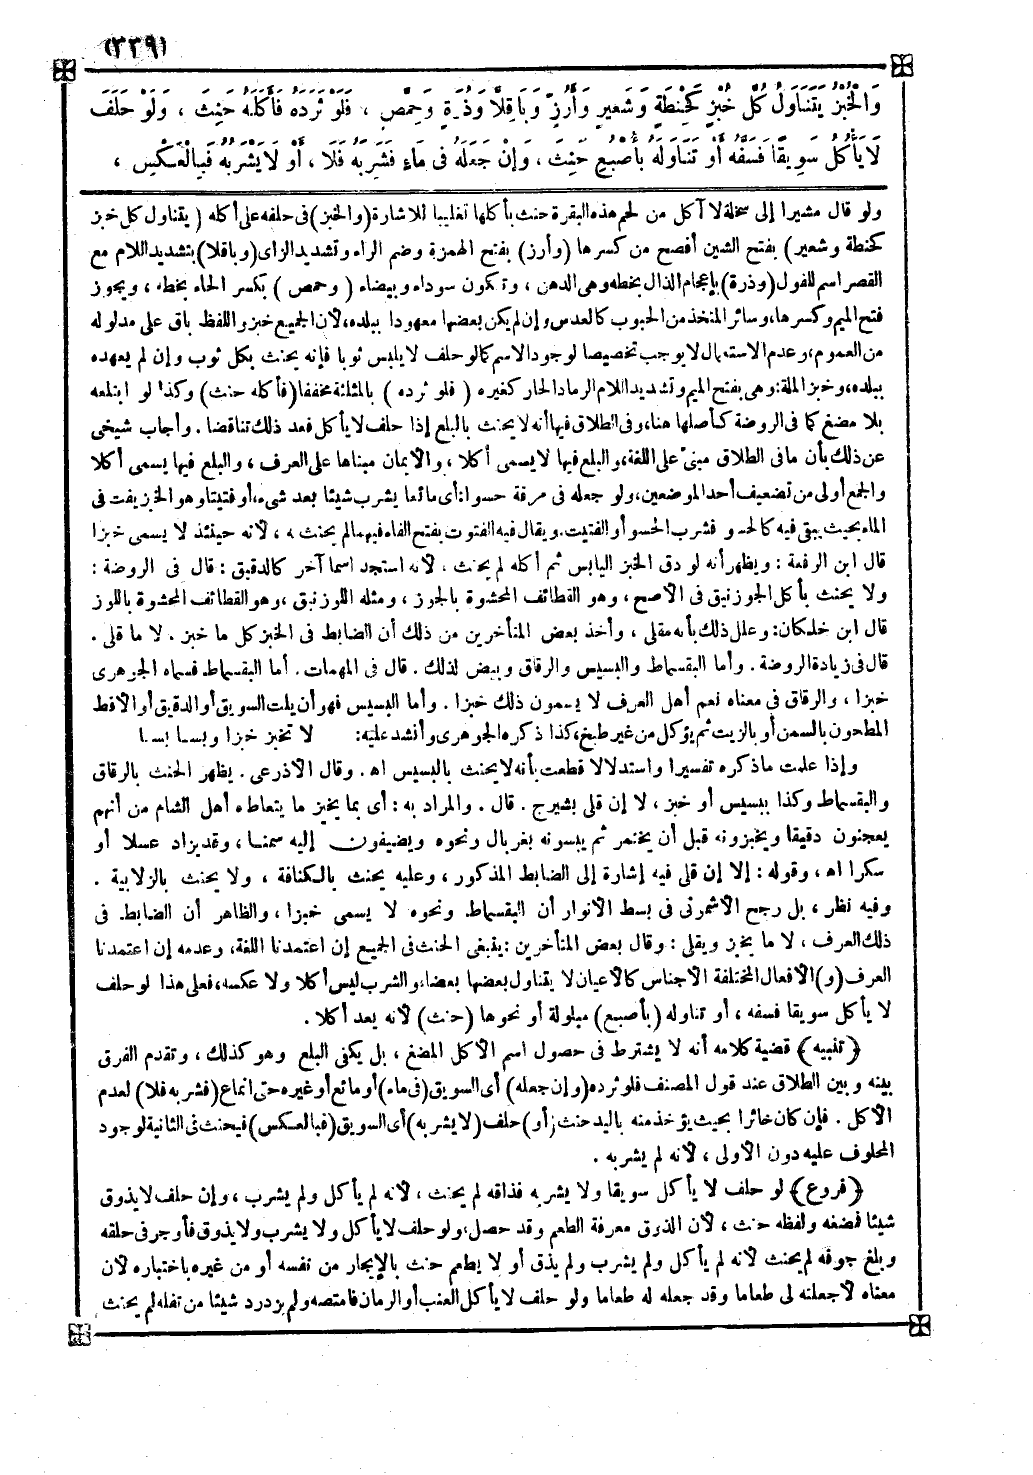 (٣٣٩)
وَالْخُبْزُ يَتَنَاوَلُ كُلَّ خُبْزٍ كَحِنْطَةٍ وَشَعِيرٍ وَأَرُزٍّ وَبَاقِلًّا وَذُرَةٍ وَحِمَّصٍ ، فَلَوْ ثَرَدَهُ فَأَكَلَهُ حَنِثَ ، وَلَوْ حَلَفَ
لَا يَأْكُلُ سَوِيقًا فَسَفَّهُ أَوْ تَنَاوَلَهُ بِأُصْبُعٍ حَنِثَ ، وَإِنْ جَعَلَهُ فِى مَاءٍ فَشَرِبَهُ فَلَا ، أَوْ لَا يَشْرَبُهُ فَبِالْعَكْسِ ،
ولو قال مشيرا إلى سخلة لا آكل من لحم هذه البقرة حنث بأكلها تغليبا للإشارة (والخبز) فى حلفه على أكله ( يتناول كل خبز
كحنطة وشعير) بفتح الشين أفصح من كسرها (وأرز) بفتح الهمزة وضم الراء وتشديد الزاى (وباقلا) بتشديد اللام مع
القصر اسم للفول (وذرة) بإعجام الذال بخطه وهى الدهن ، وتكون سوداء وبيضاء ( وحمص ) بكسر الحاء بخطه ، ويجوز
فتح الميم وكسرها ، وسائر المتخذ من الحبوب كالعدس وإن لم يكن بعضها معهودا ببلده ، لأن الجميع خبز واللفظ باق على مدلوله
من العموم ، وعدم الاستعمال لا يوجب تخصيصا لوجود الاسم كما لو حلف لا يلبس ثوبا فإنه يحنث بكل ثوب وإن لم يعهده
ببلده ، وخبز الملة : وهى بفتح الميم وتشديد اللام الرماد الحار كغيره ( فلو ثرده ) بالمثلثة مخففا (فأكله حنث) وكذا لو ابتلعه
بلا مضغ كما فى الروضة كأصلها هنا ، وفى الطلاق فيها أنه لا يحنث بالبلع إذا حلف لا يأكل فعد ذلك تناقضا . وأجاب شيخى
عن ذلك بأن ما فى الطلاق مبنىّ على اللغة ، والبلع فيها لا يسمى أكلا ، والأيمان مبناها على العرف ، والبلع فيها يسمى أكلا
والجمع أولى من تضعيف أحد الموضعين ، ولو جعله فى مرقة حسوا : أى مائعا يشرب شيئا بعد شىء ، أو فتيتا وهو الخبز يفت فى
الماء بحيث يبقى فيه كالحسو فشرب الحسو أو الفتيت . ويقال فيه الفتوت بفتح الفاء فيهما لم يحنث به ، لأنه حينئذ لا يسمى خبزا
قال ابن الرفعة : ويظهر أنه لو دق الخبز اليابس ثم أكله لم يحنث ، لأنه استجد اسما آخر كالدقيق : قال فى الروضة :
ولا يحنث بأكل الجوزنيق فى الأصح ، وهو القطائف المحشوة بالجوز ، ومثله اللوزنيق ، وهو القطائف المحشوة باللوز
قال ابن خلكان : وعلل ذلك بأنه مقلى ، وأخذ بعض المتأخرين من ذلك أن الضابط فى الخبز كل ما خبز . لا ما قلى .
قال فى زيادة الروضة . وأما البقسماط والبسيس والرقاق وبيض لذلك . قال فى المهمات . أما البقسماط فسماه الجوهرى
خبزا ، والرقاق فى معناه نعم أهل العرف لا يسمون ذلك خبزا . وأما البسيس فهو أن يلت السويق أو الدقيق أو الأقط
المطحون بالسمن أو بالزيت ثم يؤكل من غير طبخ ، كذا ذكره الجوهرى وأنشد عليه : لا تخبز خبزا وبسا بسا
وإذا علمت ما ذكره تفسيرا واستدلالا قطعت بأنه لا يحنث بالبسيس اه . وقال الأذرعى . يظهر الحنث بالرقاق
والبقسماط وكذا ببسيس أو خبز ، لا إن قلى بشيرج . قال . والمراد به : أى بما يخبز ما يتعاطاه أهل الشام من أنهم
يعجنون دقيقا ويخبزونه قبل أن يختمر ثم يبسونه بغربال ونحوه ويضيفون إليه سمنا ، وقد يزاد عسلا أو
سكرا اه ، وقوله : إلا إن قلى فيه إشارة إلى الضابط المذكور ، وعليه يحنث بالكنافة ، ولا يحنث بالزلابية .
وفيه نظر ، بل رجح الأشمونى فى بسط الأنوار أن البقسماط ونحوه لا يسمى خبزا ، والظاهر أن الضابط فى
ذلك العرف ، لا ما يخبز ويقلى : وقال بعض المتأخرين : ينبغى الحنث فى الجميع إن اعتمدنا اللغة ، وعدمه إن اعتمدنا
العرف (و) الأفعال المختلفة الأجناس كالأعيان لا يتناول بعضها بعضا ، والشرب ليس أكلا ولا عكسه ، فعلى هذا لو حلف
لا يأكل سويقا فسفه ، أو تناوله (بأصبع) مبلولة أو نحوها (حنث) لأنه يعد أكلا .
﴿تنبيه﴾ قضية كلامه أنه لا يشترط فى حصول اسم الأكل المضغ ، بل يكفى البلع وهو كذلك ، وتقدم الفرق
بينه وبين الطلاق عند قول المصنف فلو ثرده (وإن جعله) أى السويق (فى ماء) أو مائع أو غيره حتى انماع (فشربه فلا) لعدم
الأكل . فإن كان خاثرا بحيث يؤخذ منه باليد حنث (أو) حلف (لا يشربه) أى السويق (فبالعكس) فيحنث فى الثانية لوجود
المحلوف عليه دون الأولى ، لأنه لم يشربه .
﴿فروع﴾ لو حلف لا يأكل سويقا ولا يشربه فذاقه لم يحنث ، لأنه لم يأكل ولم يشرب ، وإن حلف لا يذوق
شيئا فمضغه ولفظه حنث ، لأن الذوق معرفة الطعم وقد حصل ، ولو حلف لا يأكل ولا يشرب ولا يذوق فأوجر فى حلقه
وبلغ جوفه لم يحنث لأنه لم يأكل ولم يشرب ولم يذق أو لا يطعم حنث بالإيجار من نفسه أو من غيره باختياره لأن
معناه لأجعلنه لى طعاما وقد جعله له طعاما ولو حلف لا يأكل العنب أو الرمان فامتصه ولم يزدرد شيئا من تفله لم يحنث